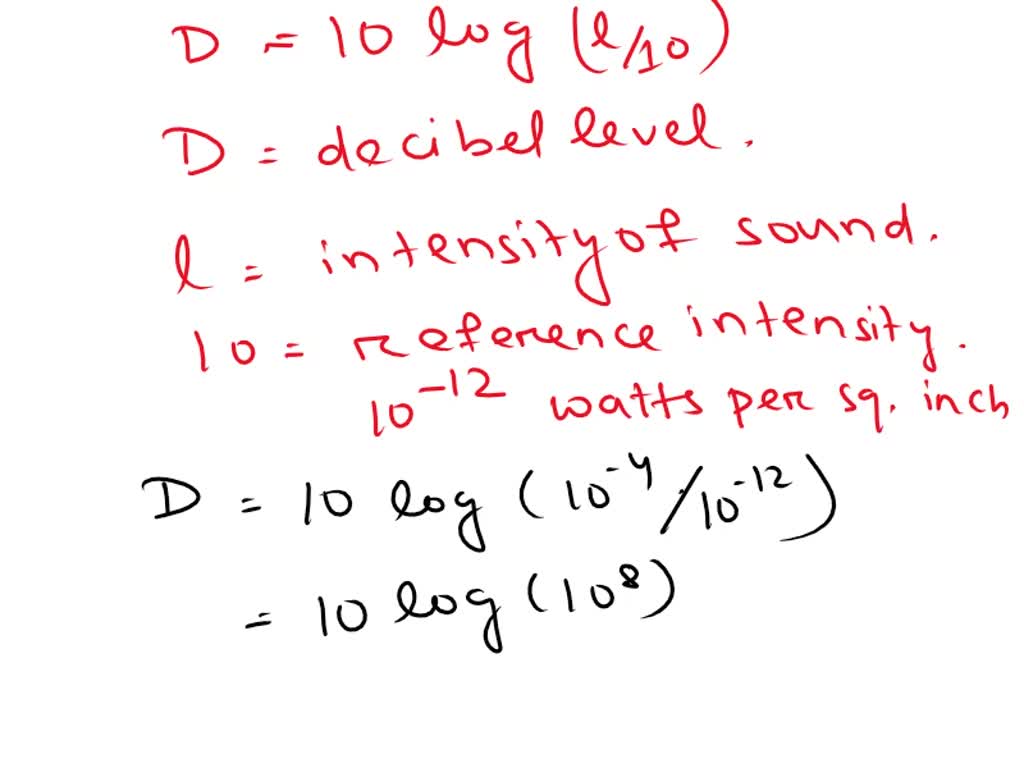 D = 10 log (l/10)
D = decibel level.
l = intensity of sound.
10 = reference intensity.
10^-12 watts per sq. inch
D = 10 log (10^-4/10^-12)
= 10 log (10^8)